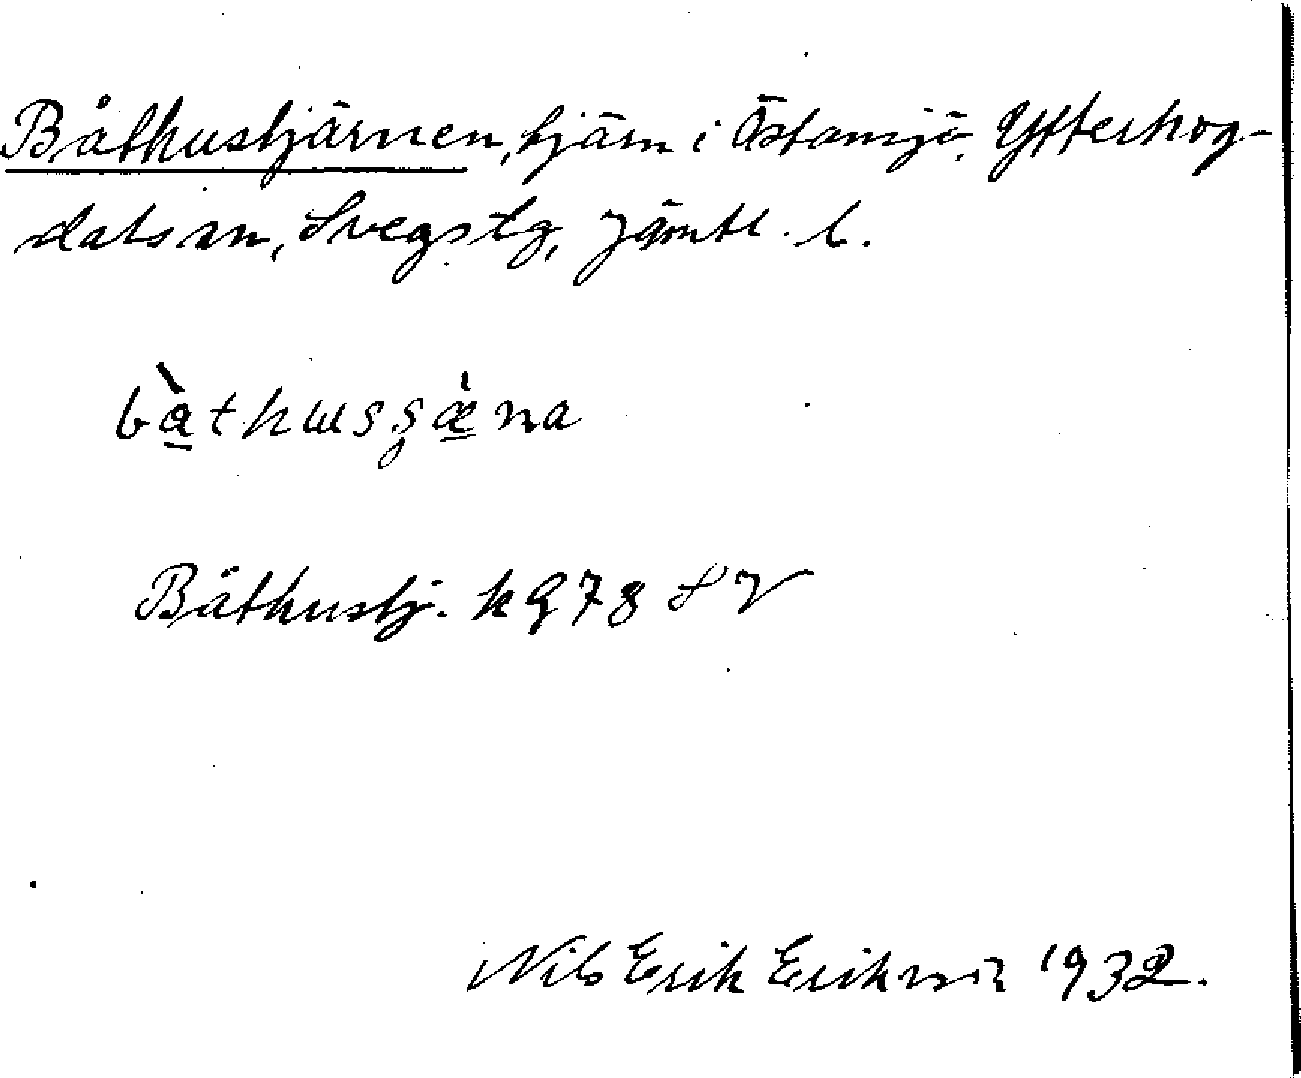 Båthustjärnen, tjärn i Östansjö, Ytterhog-
dals sn, Svegs tg, Jämtl. l.
bàthusşæ̀na
Båthustj. kg 78 SV
Nils Erik Eriksson 1932.